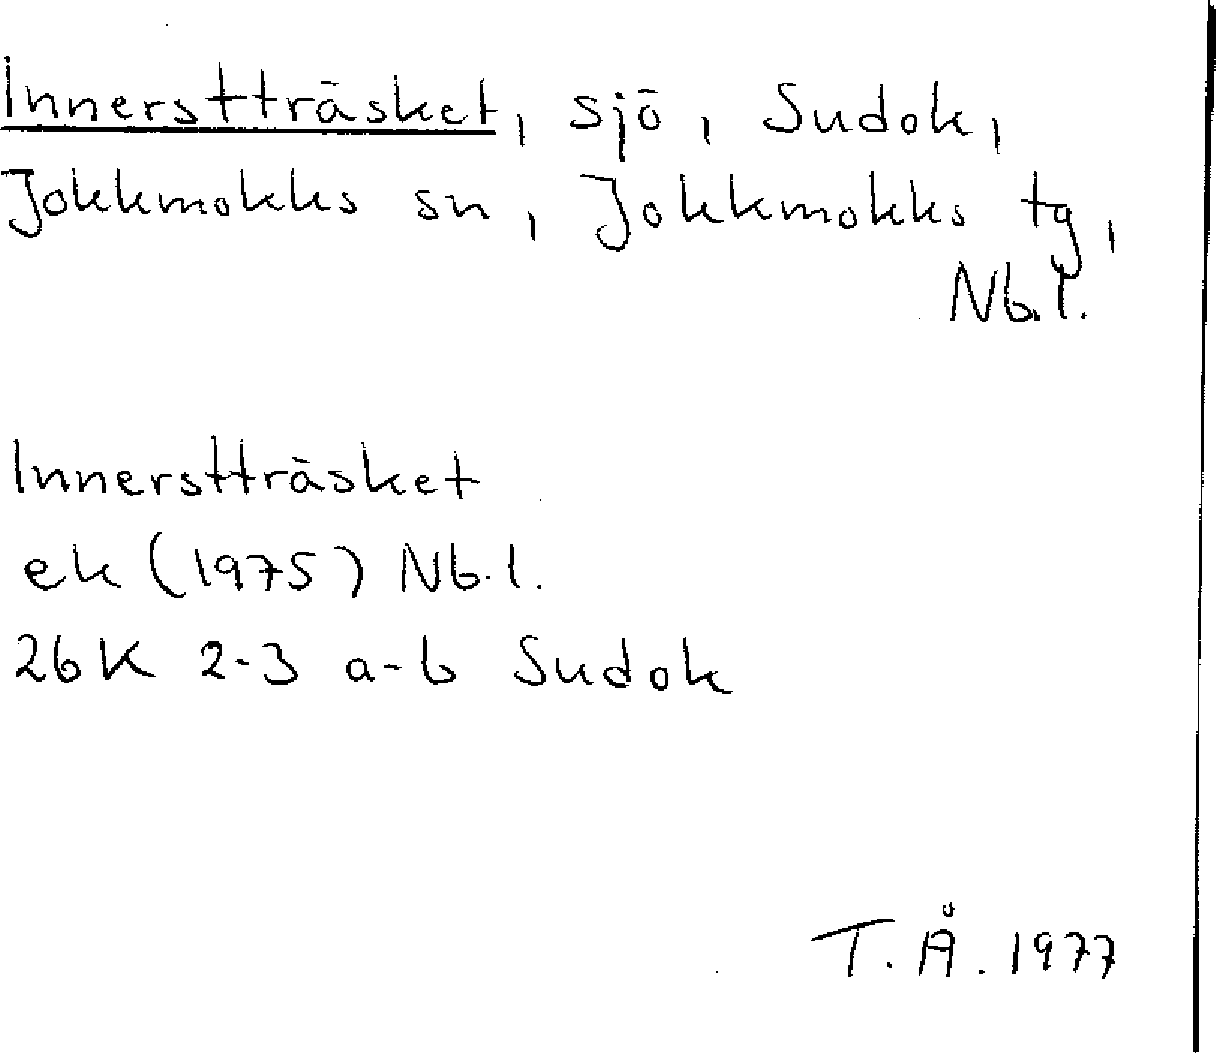 Innerstträsket, sjö, Sudok,
Jokkmokks sn, Jokkmokks tg,
Nb.l.
Innerstträsket
ek (1975) Nb.l.
26K 2-3 a-b Sudok
T.Å. 1977